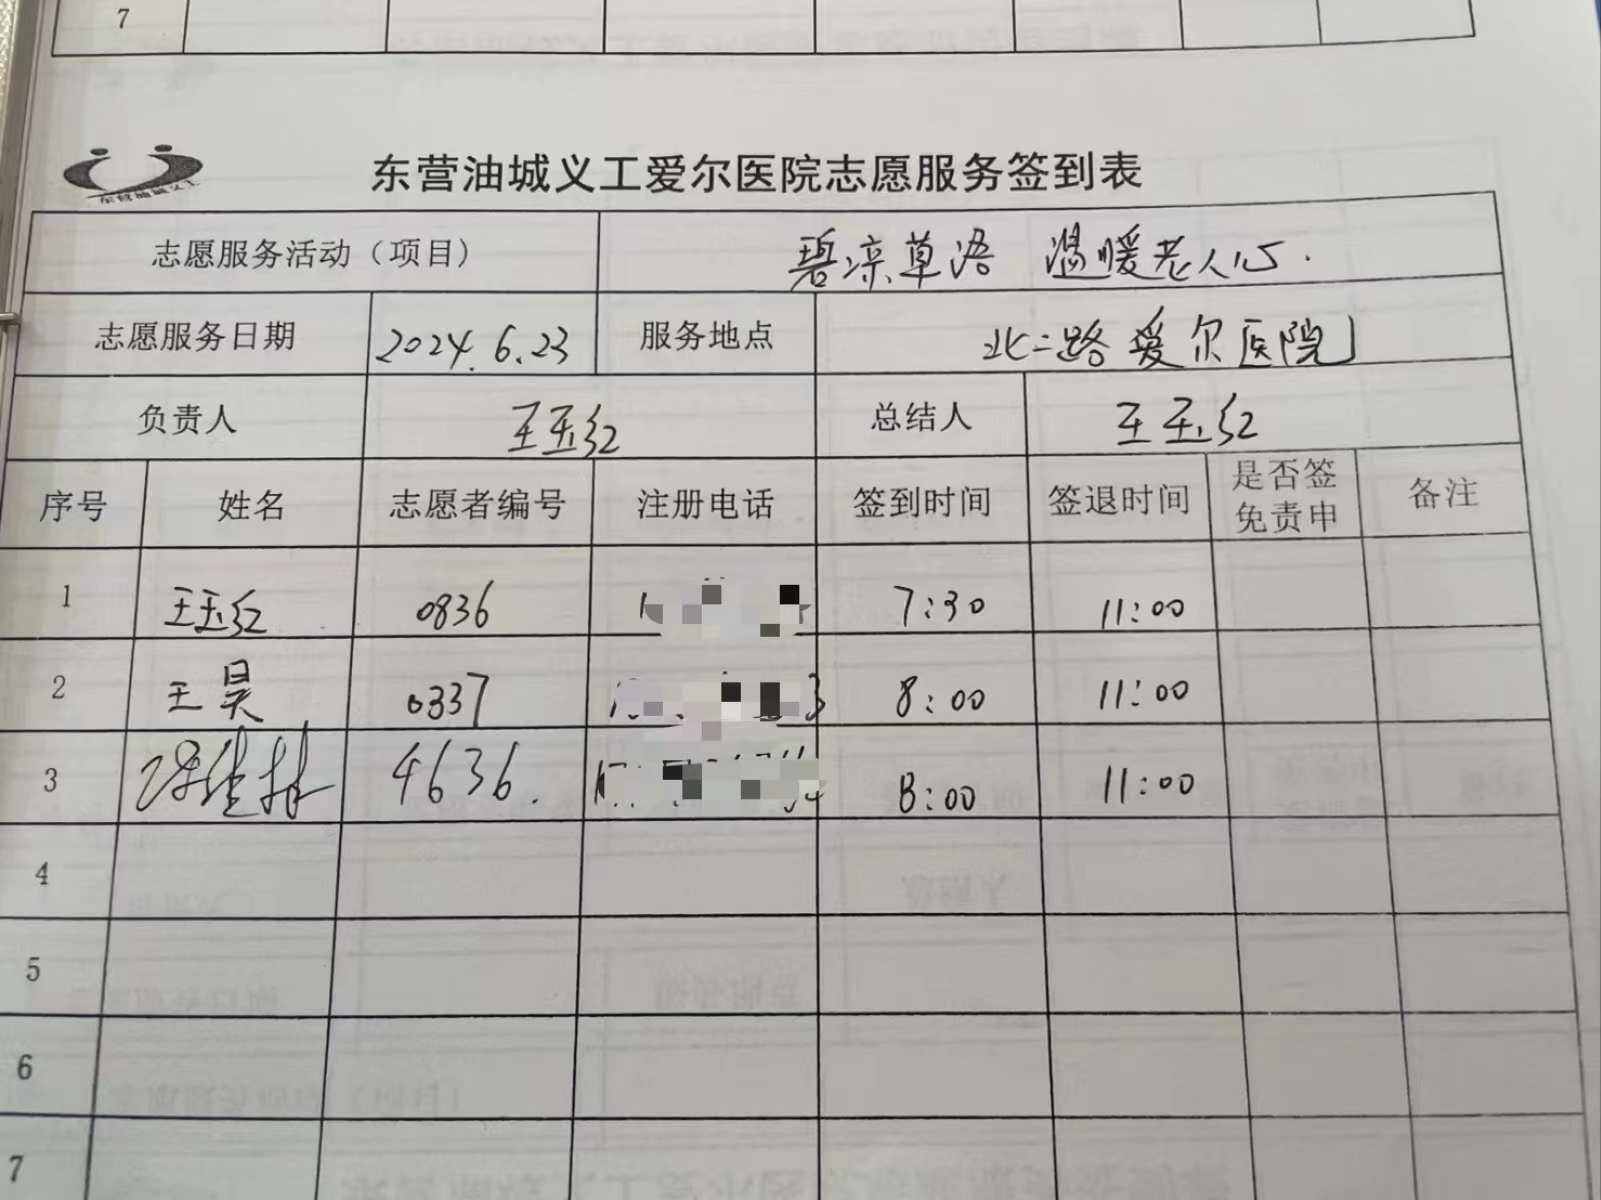 7
东营油城义工
东营油城义工爱尔医院志愿服务签到表
志愿服务活动（项目） 碧凉草语 温暖老人心.
志愿服务日期 2024.6.23 服务地点 北二路爱尔医院
负责人 王玉红 总结人 王玉红
序号 姓名 志愿者编号 注册电话 签到时间 签退时间 是否签免责申 备注
1 王玉红 0836 7:30 11:00
2 王昊 0337 8:00 11:00
3 4636. 8:00 11:00
4
5
6
7